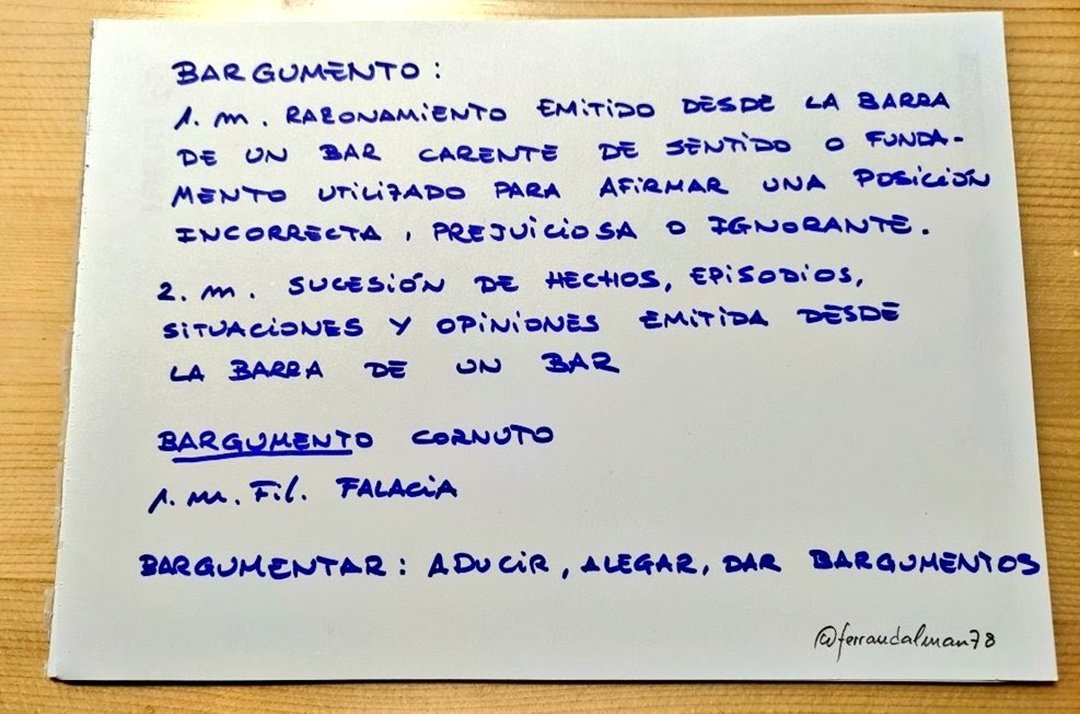 BARGUMENTO:
1. m. RAZONAMIENTO EMITIDO DESDE LA BARRA
DE UN BAR CARENTE DE SENTIDO O FUNDA-
MENTO UTILIZADO PARA AFIRMAR UNA POSICIÓN
INCORRECTA, PREJUICIOSA O IGNORANTE.
2. m. SUCESIÓN DE HECHOS, EPISODIOS,
SITUACIONES Y OPINIONES EMITIDA DESDE
LA BARRA DE UN BAR
BARGUMENTO CORNUTO
1. m. Fil. FALACIA
BARGUMENTAR: ADUCIR, ALEGAR, DAR BARGUMENTOS
@ferrandalman78